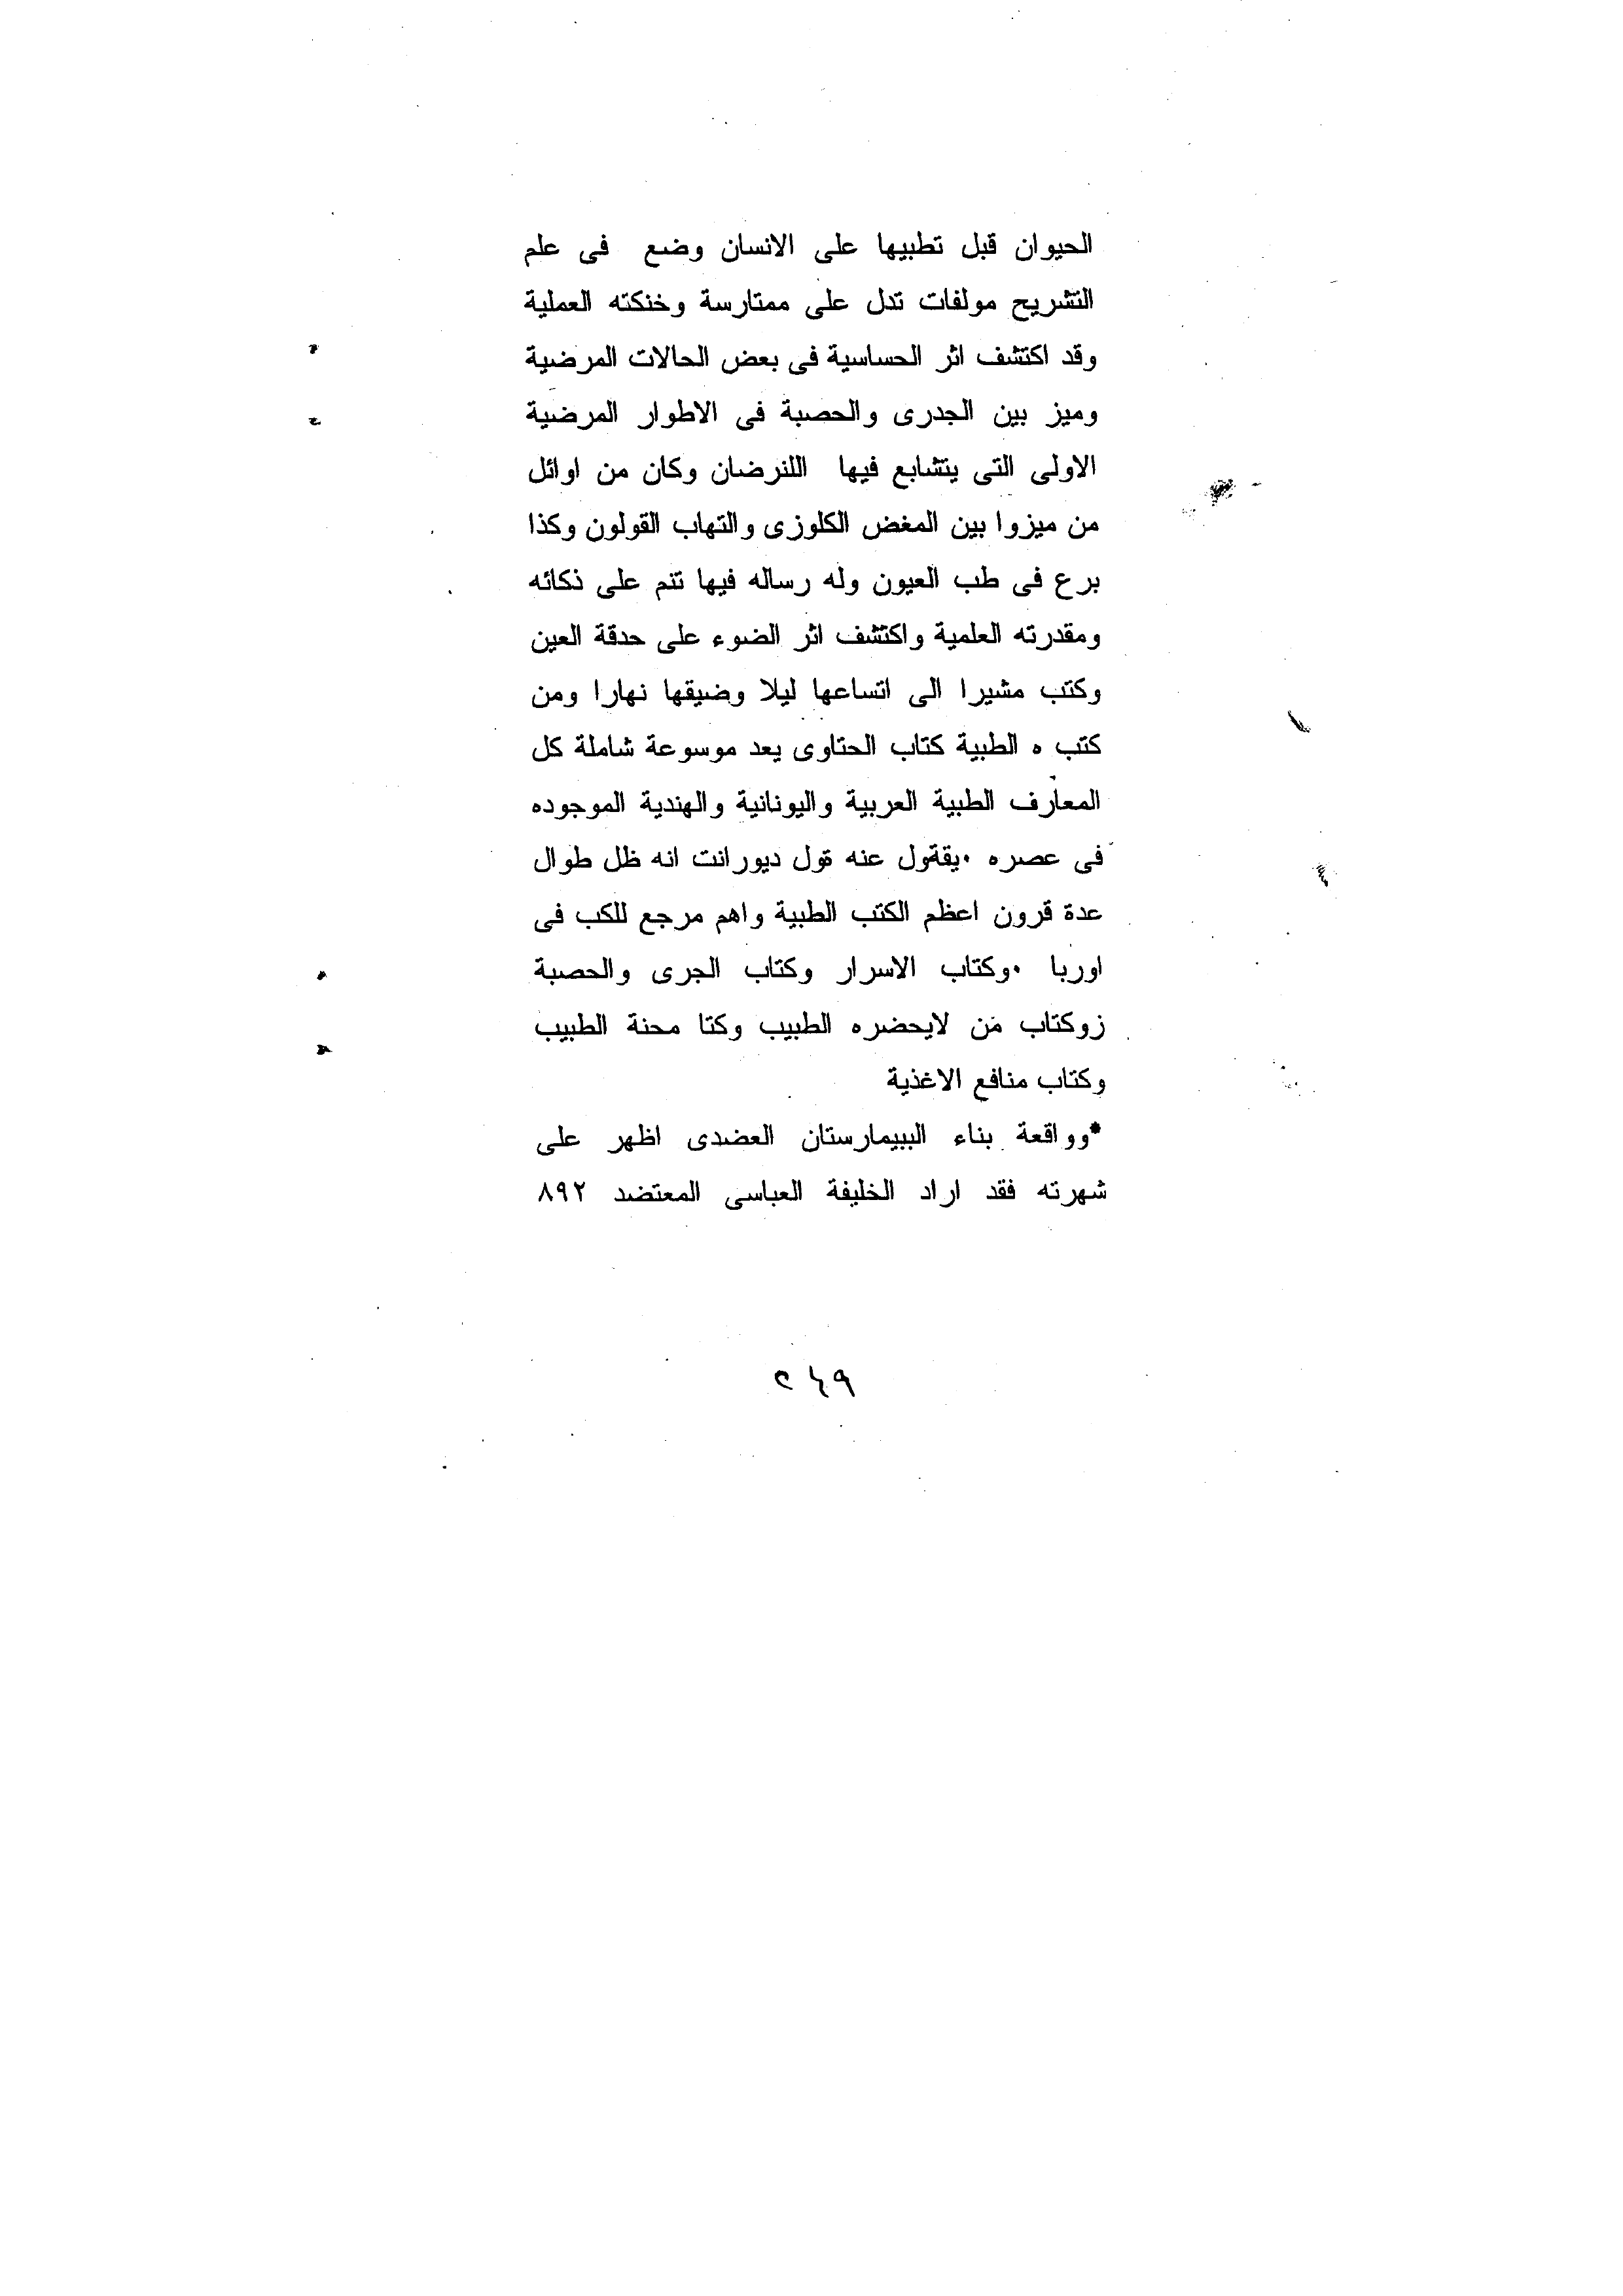 الحيوان قبل تطبيها على الانسان وضع فى علم
التشريح مولفات تدل على ممتارسة وخنكته العملية
وقد اكتشف اثر الحساسية فى بعض الحالات المرضية
وميز بين الجدرى والحصبة فى الاطوار المرضية
الاولى التى يتشابع فيها اللنرضان وكان من اوائل
من ميزوا بين المغض الكلوزى والتهاب القولون وكذا
برع فى طب العيون وله رساله فيها تنم على نكائه
ومقدرته العلمية واكتشف اثر الضوء على حدقة العين
وكتب مشيرا الى اتساعها ليلا وضيقها نهارا ومن
كتب ه الطبية كتاب الحتاوى يعد موسوعة شاملة كل
المعارف الطبية العربية واليونانية والهندية الموجوده
فى عصره ٠يقةول عنه ةول ديورانت انه ظل طوال
عدة قرون اعظم الكتب الطبية واهم مرجع للكب فى
اوربا ٠وكتاب الاسرار وكتاب الجرى والحصبة
زوكتاب من لايحضره الطبيب وكتا محنة الطبيب
وكتاب منافع الاغذية
*وواقعة بناء الببيمارستان العضدى اظهر على
شهرته فقد اراد الخليفة العباسى المعتضد ٨٩٢
٢٤٩